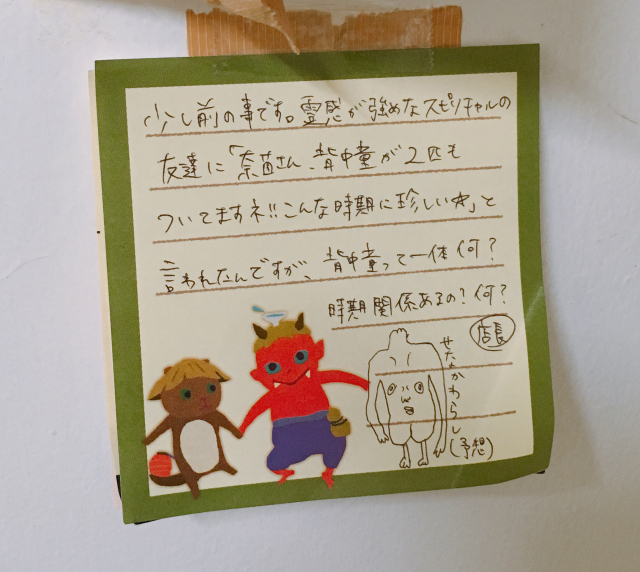 少し前の事です。霊感が強めなスピリチャルの
友達に「奈苗さん、背中童が2匹も
ついてますネ!!こんな時期に珍しい☆」と
言われたんですが、背中童って一体何?
時期関係あるの?何?
店長
せなかわらし(予想)